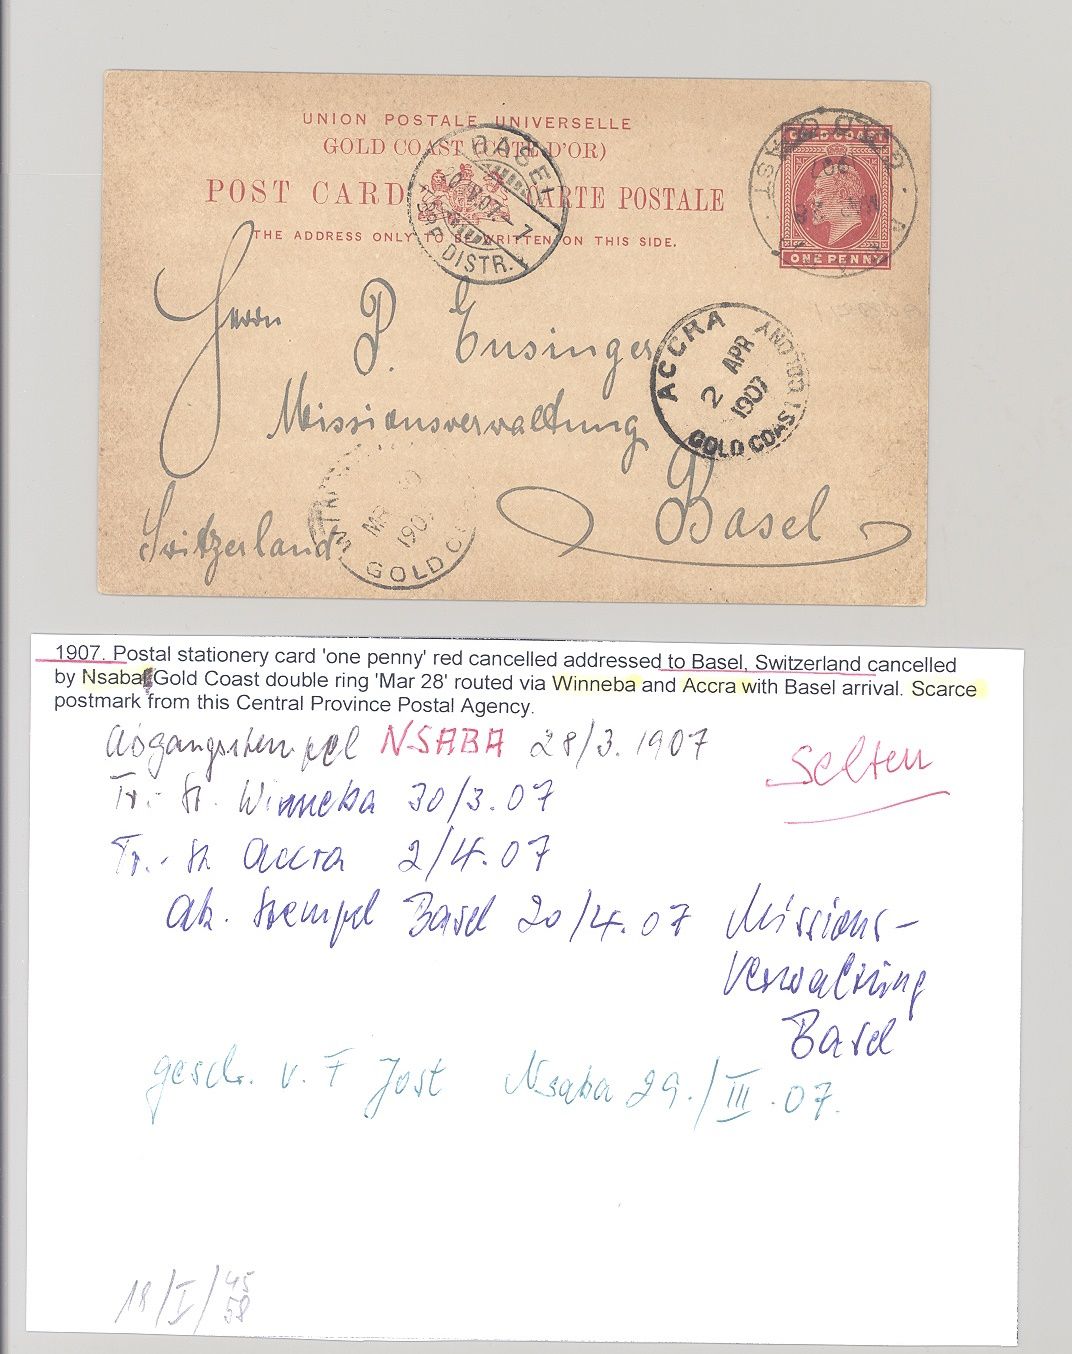 UNION POSTALE UNIVERSELLE
GOLD COAST (CÔTE D'OR)
POST CARD CARTE POSTALE
THE ADDRESS ONLY TO BE WRITTEN ON THIS SIDE.
GOLD COAST
ONE PENNY
GOLD COAST
1907
BASEL
DISTR.
Herrn P. Ensinger
Missionsverwaltung
Basel
Switzerland
ACCRA
2 APR
1907
GOLD COAST COLONY
MR 30
190
GOLD CO
1907. Postal stationery card 'one penny' red cancelled addressed to Basel, Switzerland cancelled
by Nsaba Gold Coast double ring 'Mar 28' routed via Winneba and Accra with Basel arrival. Scarce
postmark from this Central Province Postal Agency.
Abgangsstempel NSABA 28/3.1907
Selten
Tr.- St. Winneba 30/3.07
Tr.- St. Accra 2/4.07
Ak. Stempel Basel 20/4.07 Missions-
Verwaltung
Basel
geschr. v. F Jost Nsaba 29./III.07.
18/I/45
58